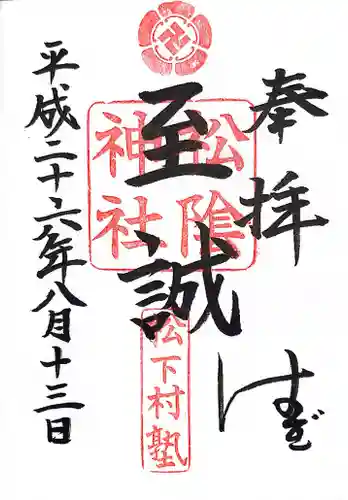 奉拝
はぎ
松陰神社
至誠
松下村塾
平成二十六年八月十三日